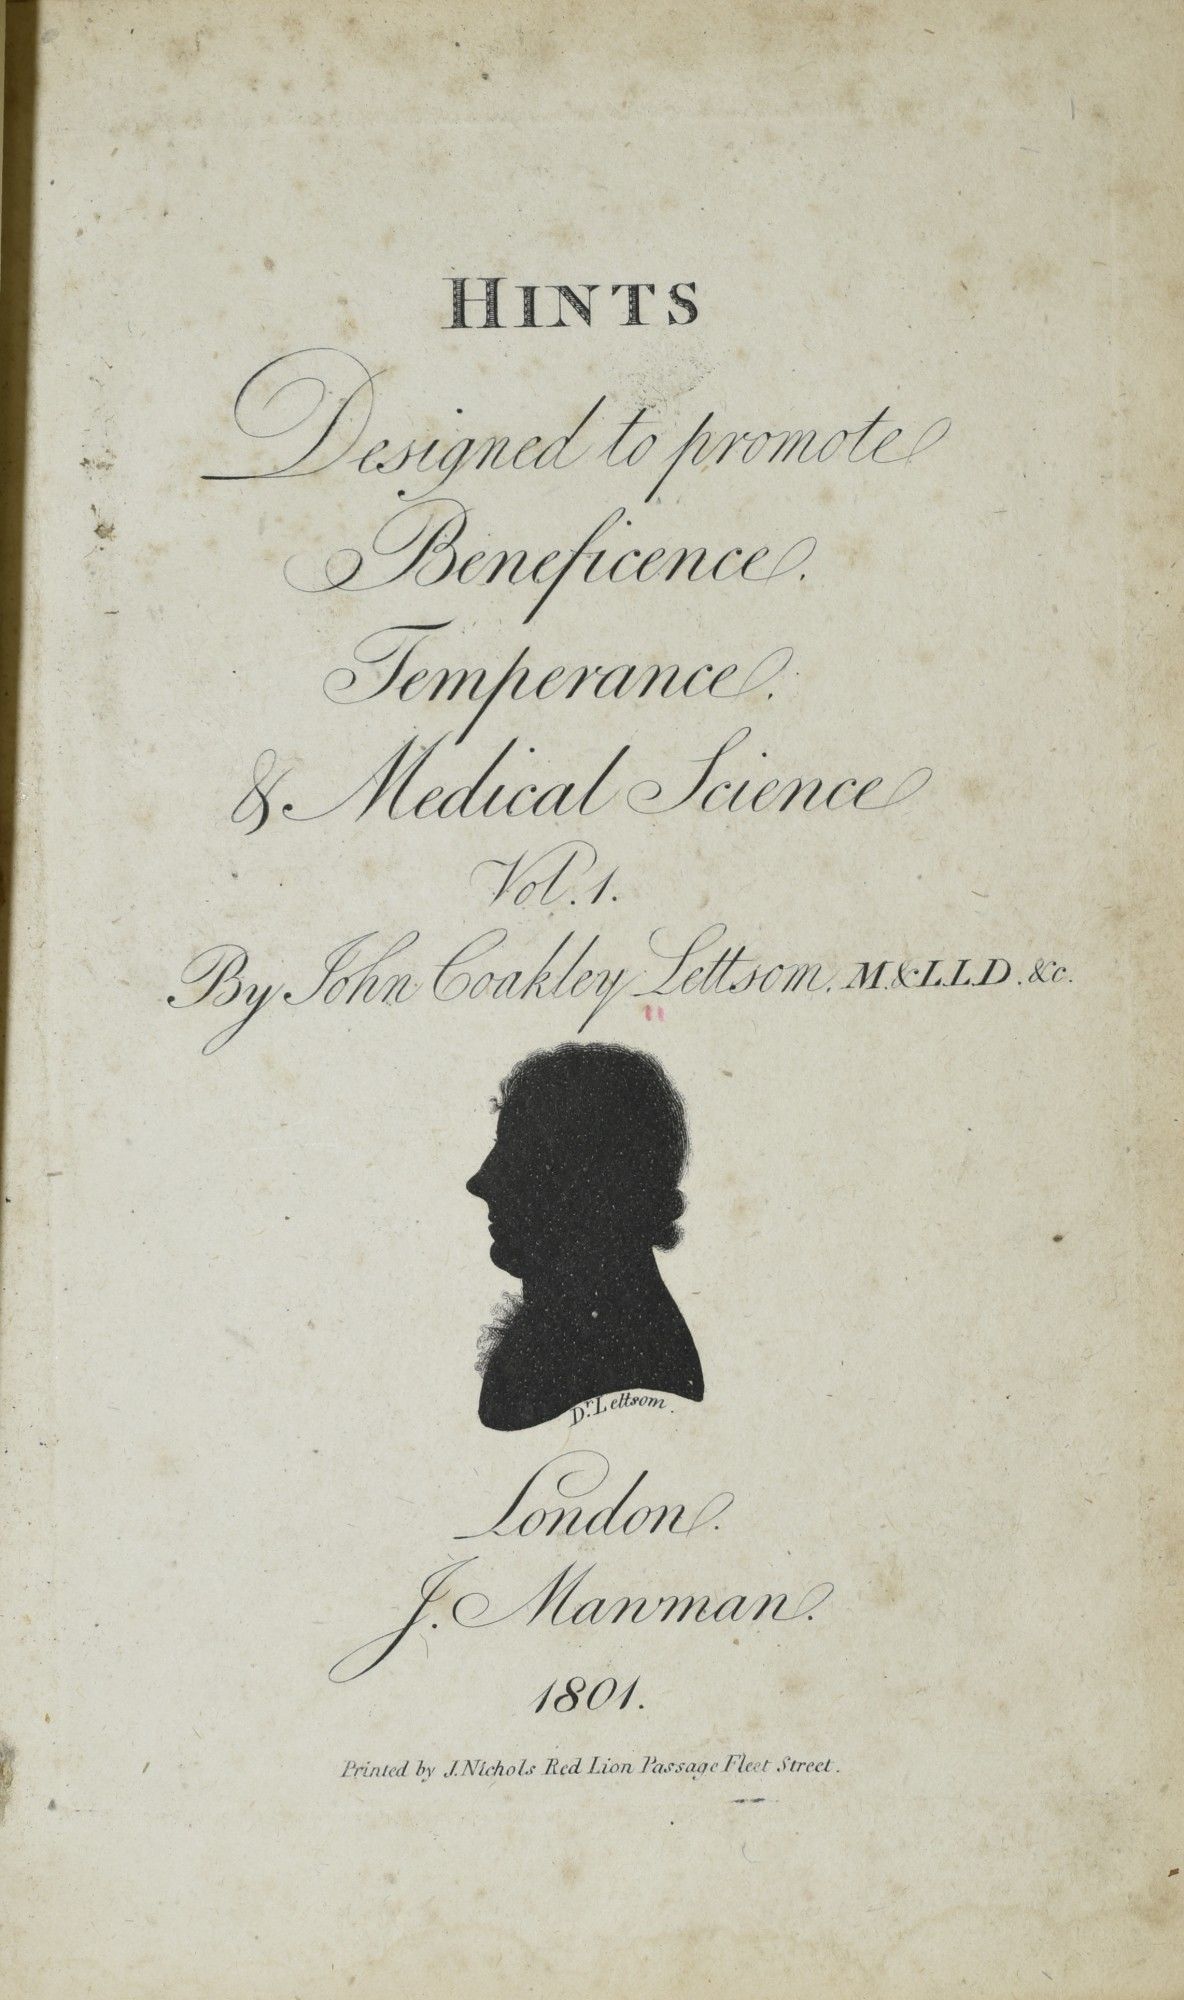 HINTS
Designed to promote
Beneficence.
Temperance.
& Medical Science
Vol. 1.
By John Coakley Lettsom. M.& L.L.D. &c.
Dr. Lettsom.
London.
J. Mawman.
1801.
Printed by J. Nichols Red Lion Passage Fleet Street.